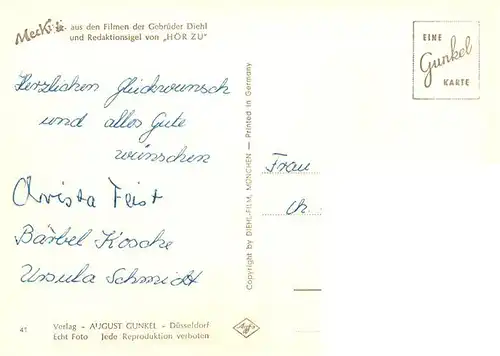 Mecki aus den Filmen der Gebrüder Diehl
und Redaktionsigel von „HÖR ZU"
EINE
Gunkel
KARTE
Herzlichen Glückwunsch
und alles Gute
wünschen
Christa Feist
Bärbel Kosche
Ursula Schmidt
Copyright by DIEHL-FILM, MÜNCHEN — Printed in Germany
Frau
Ch.
41
Verlag – AUGUST GUNKEL – Düsseldorf
Echt Foto Jede Reproduktion verboten
Agfa